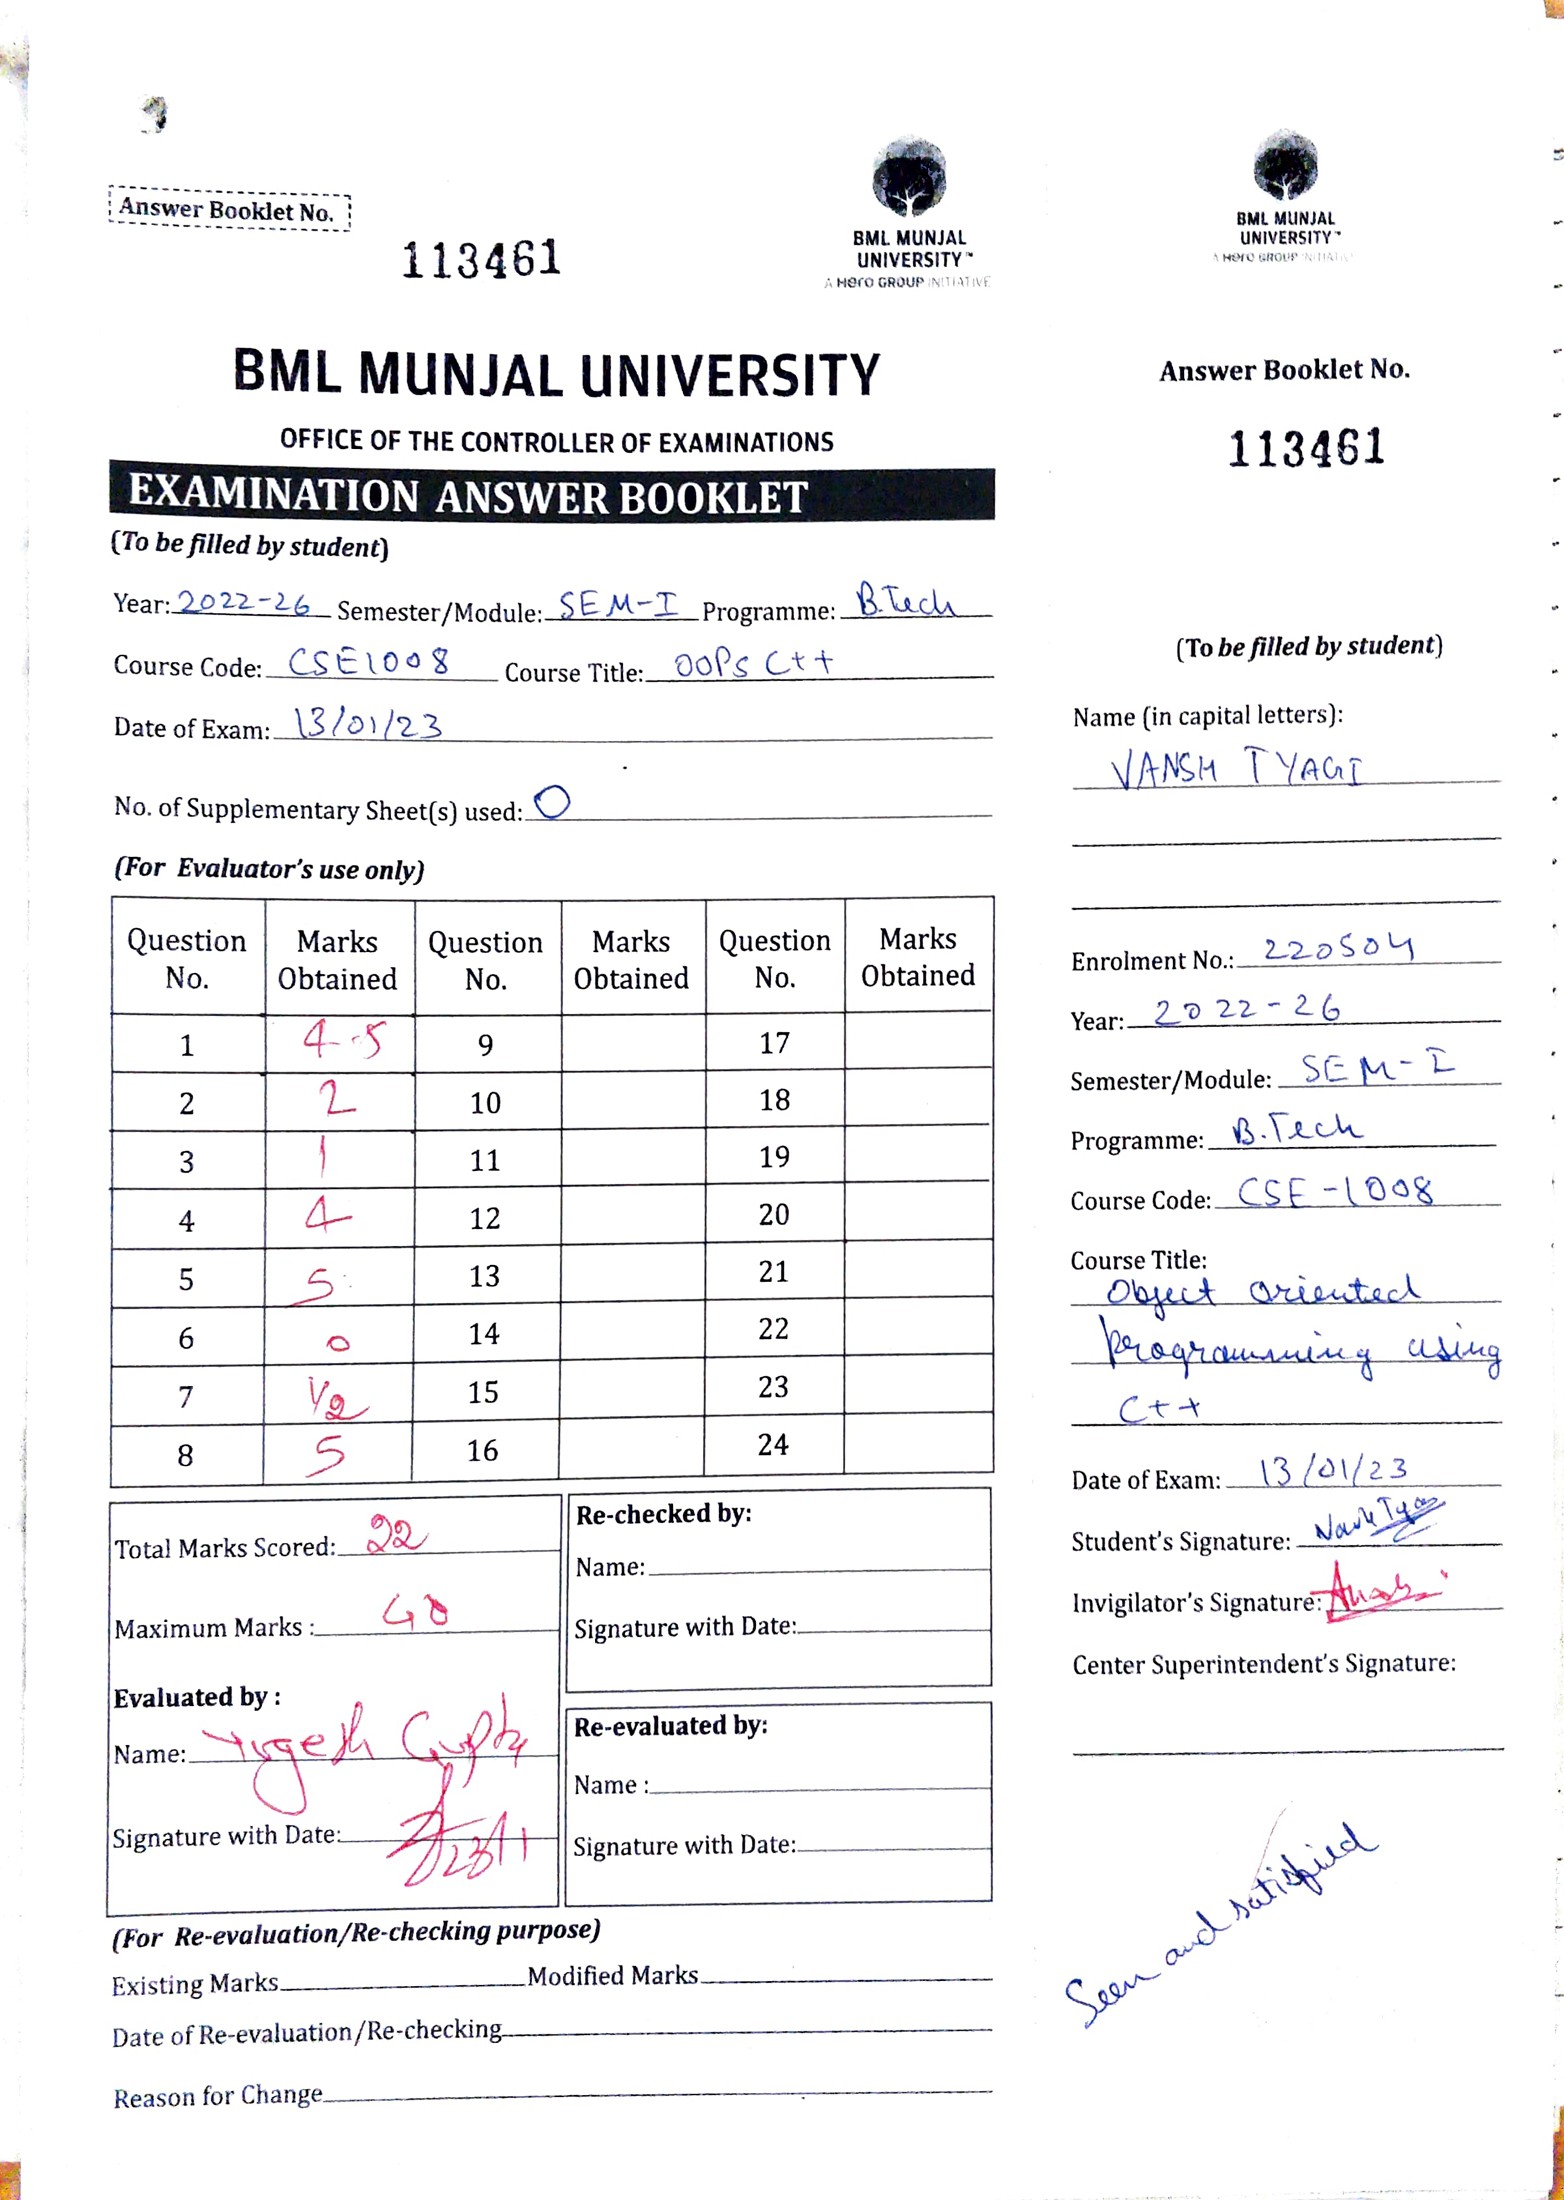 Answer Booklet No.
113461
BML MUNJAL
UNIVERSITY™
A Hero GROUP INITIATIVE
BML MUNJAL UNIVERSITY
OFFICE OF THE CONTROLLER OF EXAMINATIONS
EXAMINATION ANSWER BOOKLET
(To be filled by student)
Year: 2022-26 Semester/Module: SEM-I Programme: B.Tech
Course Code: CSE1008 Course Title: OOPS C++
Date of Exam: 13/01/23
No. of Supplementary Sheet(s) used: 0
(For Evaluator's use only)
Question No. Marks Obtained Question No. Marks Obtained Question No. Marks Obtained
1 4.5 9 17
2 2 10 18
3 1 11 19
4 4 12 20
5 5 13 21
6 0 14 22
7 1/2 15 23
8 5 16 24
Total Marks Scored: 22
Maximum Marks : 40
Evaluated by :
Name: Yogesh Gupta
Signature with Date: 23/1
Re-checked by:
Name:
Signature with Date:
Re-evaluated by:
Name :
Signature with Date:
(For Re-evaluation/Re-checking purpose)
Existing Marks Modified Marks
Date of Re-evaluation/Re-checking
Reason for Change
BML MUNJAL
UNIVERSITY™
A Hero GROUP INITIATIVE
Answer Booklet No.
113461
(To be filled by student)
Name (in capital letters):
VANSH TYAGI
Enrolment No.: 220504
Year: 2022-26
Semester/Module: SEM-I
Programme: B.Tech
Course Code: CSE-1008
Course Title:
Object oriented
programming using
C++
Date of Exam: 13/01/23
Student's Signature:
Invigilator's Signature:
Center Superintendent's Signature:
Seen and satisfied